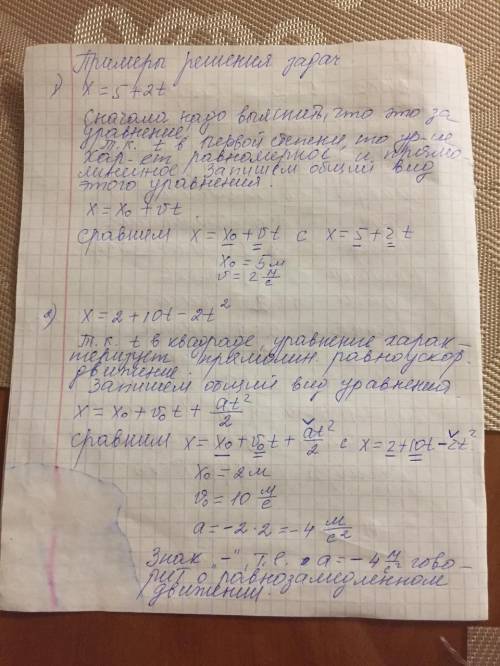 Примеры решения задач
1) x = 5 + 2t
Сначала надо выяснить, что это за
уравнение.
Т.к. t в первой степени, то ур-ие
хар-ет равномерное и прямо-
линейное. Запишем общий вид
этого уравнения.
x = x₀ + υt.
сравним x = x₀ + υt с x = 5 + 2t
x₀ = 5м
υ = 2 м/с
2) x = 2 + 10t - 2t²
Т.к. t в квадрате, уравнение харак-
теризует прямолин. равноускор.
движение.
Запишем общий вид уравнения
x = x₀ + υ₀t + at²/2
сравним x = x₀ + υ₀t + at²/2 с x = 2 + 10t - 2t²
x₀ = 2м
υ₀ = 10 м/с
a = -2·2 = -4 м/с²
Знак „-", т.е. a = -4 м/с² гово-
рит о равнозамедленном
движении.